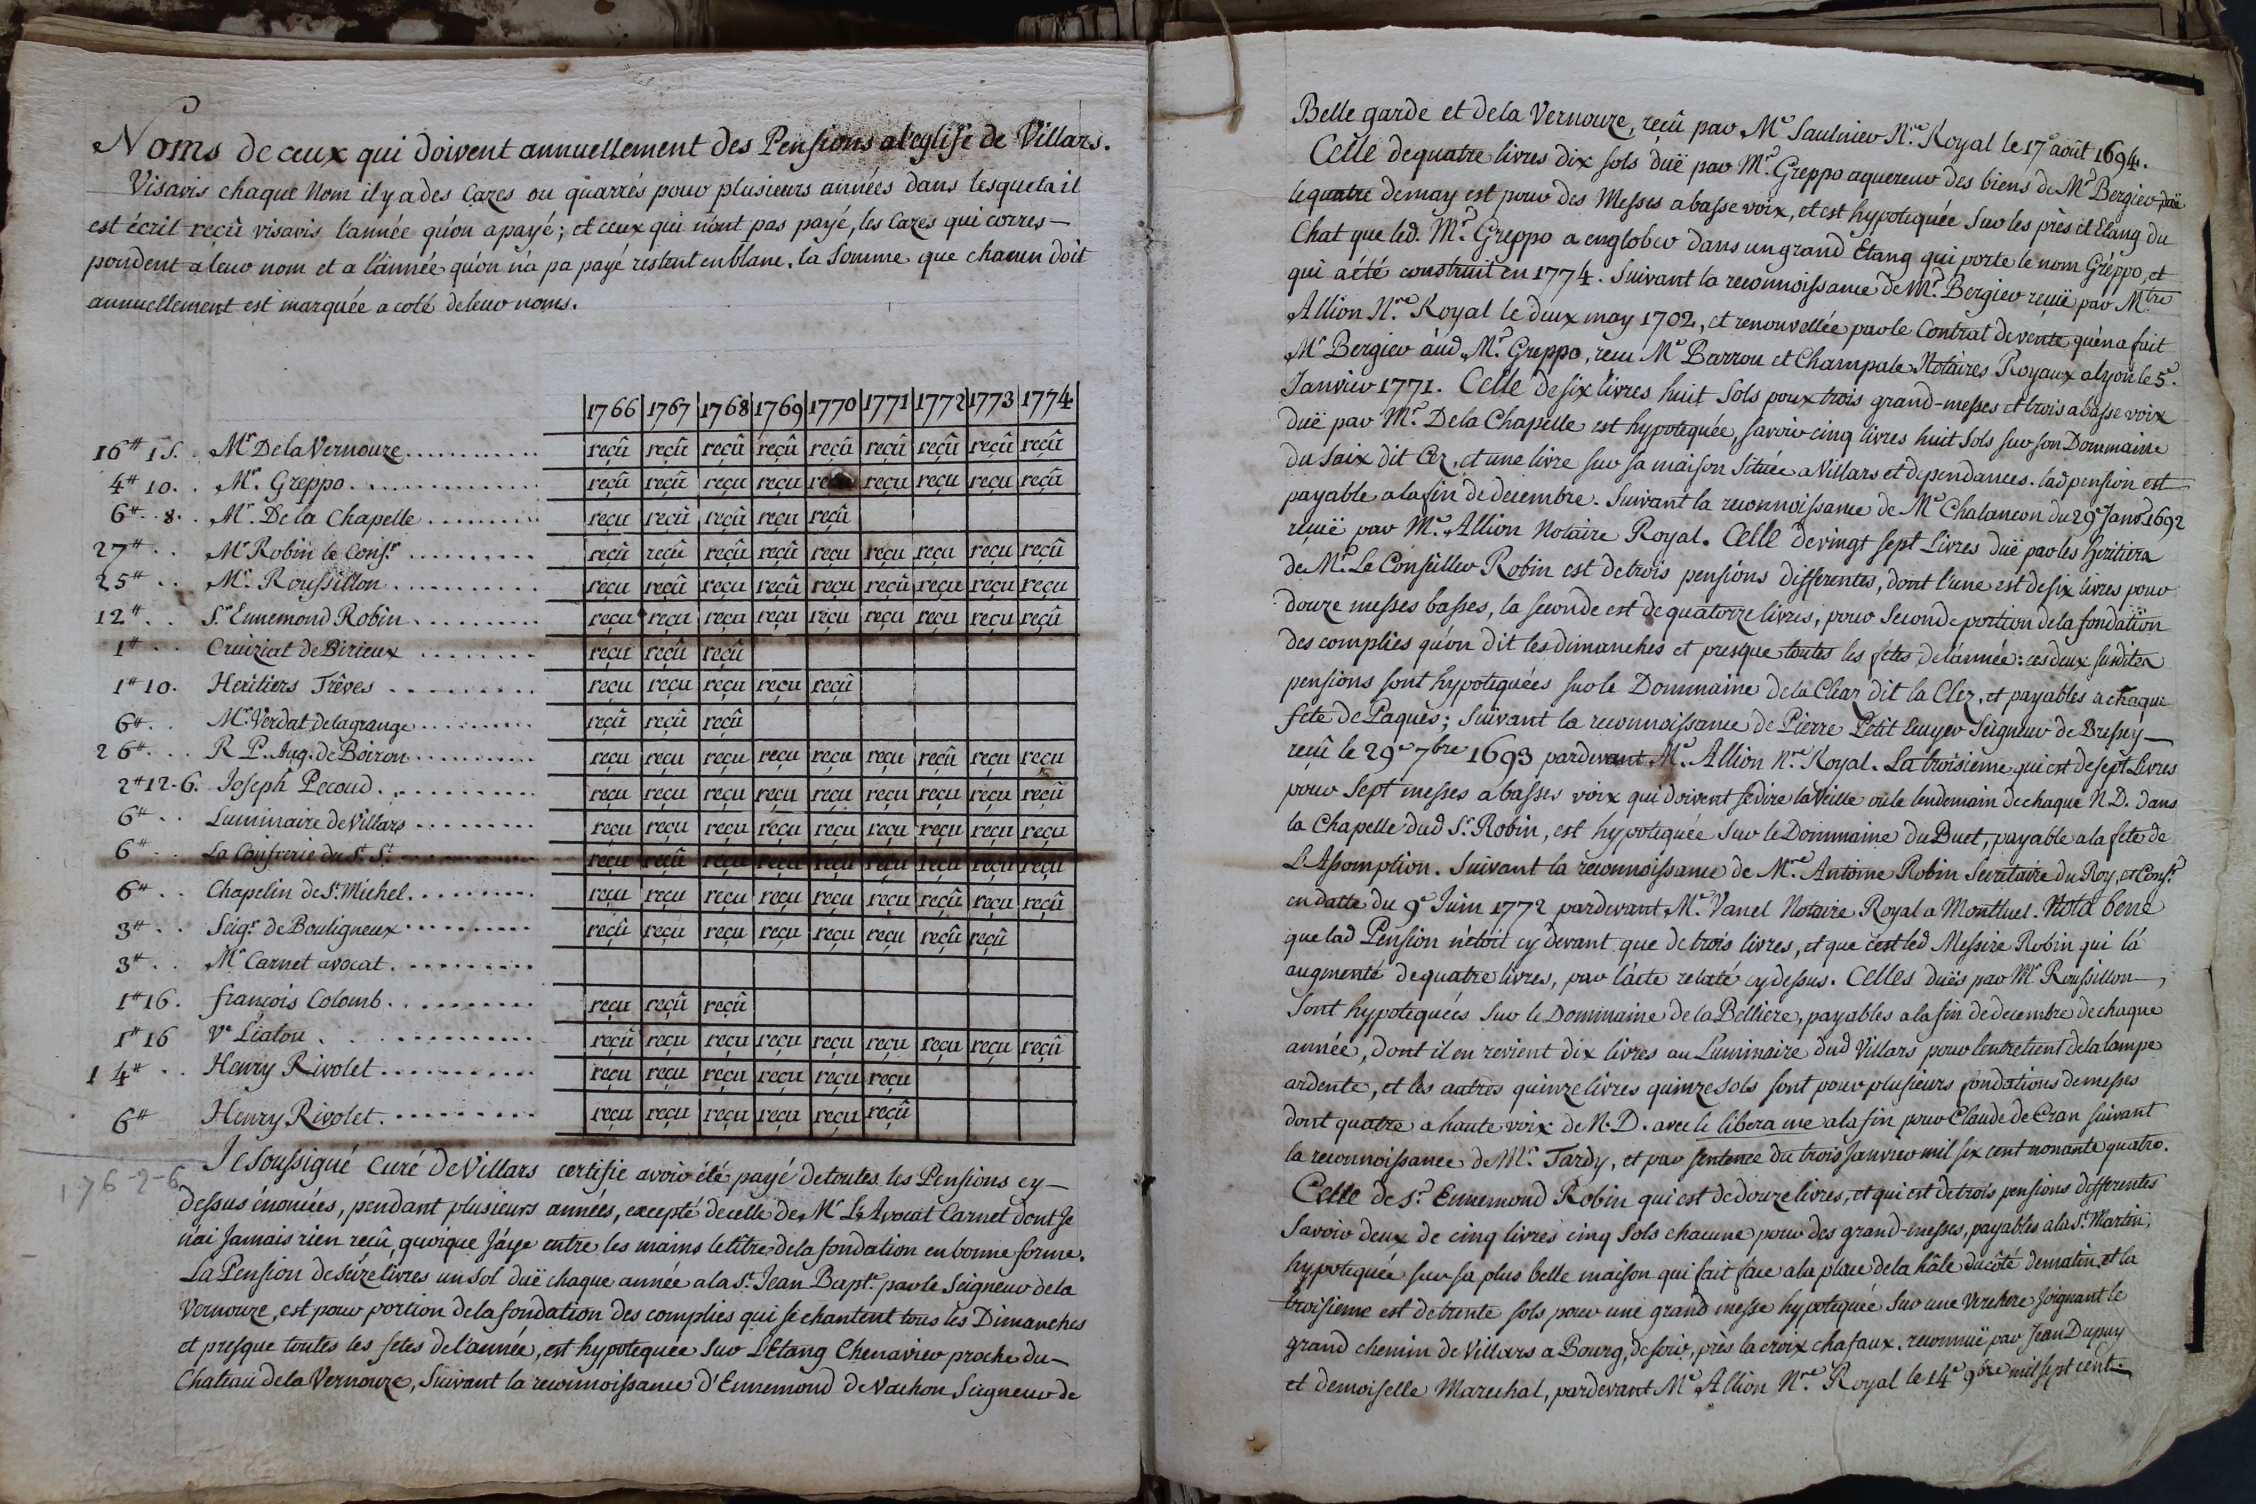 Noms de ceux qui doivent annuellement des Pensions a l'eglise de Villars.
Visavis chaque Nom il y a des Cazes ou quarrés pour plusieurs années dans lesquels il
est écrit reçû visavis l'année qu'on a payé; et ceux qui n'ont pas payé, les Cazes qui corres-
pondent a leur nom et a l'année qu'on n'a pa payé restent en blanc. la Somme que chacun doit
annuellement est marquée a coté de leur noms.
1766 1767 1768 1769 1770 1771 1772 1773 1774
16# 1 s. Mr De la Vernouze reçû reçû reçû reçû reçû reçû reçû reçû reçû
4# 10. Mr. Greppo reçû reçû reçu reçu reçu reçu reçu reçu reçû
6# 8. Mr. De la Chapelle reçu reçû reçû reçu reçû
27# Mr Robin le Consr reçû reçû reçû reçû reçu reçu reçu reçu reçû
25# Mr. Roussillon reçu reçû reçu reçû reçu reçû reçu reçu reçu
12# Sr Ennemond Robin reçu reçu reçu reçu reçu reçu reçu reçu reçû
1# Cruiziat de Birieux reçu reçû reçû
1# 10. Heritiers Trêves reçu reçu reçu reçu reçû
6# Mr. Verdat de lagrange reçû reçû reçû
26# R. P. Aug. de Boiron reçu reçu reçu reçu reçu reçu reçû reçu reçu
2# 12-6. Joseph Pecoud reçu reçu reçu reçu reçu reçu reçu reçu reçû
6# Luminaire de Villars reçu reçu reçu reçu reçu reçu reçu reçu reçu
6# La Confrerie du St. St. reçu reçû reçu reçu reçu reçu reçu reçu reçu
6# Chapelin de St. Michel reçu reçu reçu reçu reçu reçu reçû reçu reçû
3# Seigr de Bouligneux reçû reçu reçu reçu reçu reçu reçû reçû
3# Mr Carnet avocat
1# 16. françois Colomb reçu reçû reçû
1# 16 Ve Liatou reçû reçu reçu reçu reçu reçu reçu reçu reçû
14# Henry Rivolet reçu reçu reçu reçu reçu reçu
6# Henry Rivolet reçu reçu reçu reçu reçu reçû
176-2-6
Je Soussigné Curé de Villars certifie avoir été payé de toutes les Pensions cy-
dessus énoncées, pendant plusieurs années, excepté de celle de Mr L'Avocat Carnet dont Je
n'ai Jamais rien reçû, quoique J'aye entre les mains le titre de la fondation en bonne forme.
La Pension de Seize livres un Sol duë chaque année a la St. Jean Bapte. par le Seigneur de la
Vernouze, est pour portion de la fondation des complies qui se chantent tous les Dimanches
et presque toutes les fetes de l'année, est hypotequée Sur L'Etang Chenavier proche du-
Chateau de la Vernouze, Suivant la reconnoissance d'Ennemond de Vachon Seigneur de
Belle garde et de la Vernouze, reçû par Me Saulnier Nre. Royal le 17e août 1694.
Celle de quatre livres dix sols duë par Mr. Greppo aquereur des biens de Mr. Bergier, duë
le quatre de may est pour des Messes a basse voix, et est hypotequée Sur les près et Etang du
Chat que led. Mr. Greppo a englober dans un grand Etang qui porte le nom Gréppo, et
qui a été construit en 1774. Suivant la reconnoissance de Mr. Bergier reçuë par Mtre
Allion Nre. Royal le deux may 1702, et renouvellée par le Contrat de vente qu'en a fait
Mr Bergier aud. Mr. Greppo, reçu Me Barrou et Champale Notaires Royaux a lyon le 5e.
Janvier 1771. Celle de six livres huit Sols pour trois grand-messes et trois a basse voix
duë par Mr. De la Chapelle est hypotequée, savoir cinq livres huit Sols sur son Dommaine
du Saix dit Cez, et une livre sur sa maison Située a Villars et dependances. lad pension est
payable a la fin de decembre. Suivant la reconnoissance de Me Chalancon du 29e Janvr 1692
reçuë par Me. Allion Notaire Royal. Celle de vingt sept Livres duë par les heritiers
de Mr. Le Conseiller Robin est de trois pensions differentes, dont l'une est de six livres pour
douze messes basses, la seconde est de quatorze livres, pour Seconde portion de la fondation
des complies qu'on dit les dimanches et presque toutes les fêtes de l'année: ces deux susdites
pensions sont hypotequées sur le Dommaine de la Cléaz dit la Clez, et payables a chaque
fete de Paques; Suivant la reconnoissance de Pierre Petit Ecuyer Seigneur de Bresseÿ-
reçû le 29e 7bre 1693 pardevant Me. Allion Nre. Royal. La troisieme qui est de sept Livres
pour Sept messes a basses voix qui doivent se dire la veille ou le lendemain de chaque N.D. dans
la Chapelle dud Sr. Robin, est hypotequée Sur le Dommaine du Buet, payable a la fete de
L'Assomption. Suivant la reconnoissance de Mre Antoine Robin Secretaire du Roy, et Consr.
en datte du 9e Juin 1772 pardevant Me. Vanel Notaire Royal a Montluel. Nota bene
que lad Pension n'etoit cy devant que de trois livres, et que c'est led Messire Robin qui l'a
augmenté de quatre livres, par l'acte relaté cy dessus. Celles duës par Mr Roussillon-
sont hypotequées Sur le Dommaine de la Belliere, payables a la fin de decembre de chaque
année, dont il en revient dix livres au Luminaire dud Villars pour l'entretient de la lampe
ardente, et les autres quinze livres quinze Sols sont pour plusieurs fondations de messes
dont quatre a haute voix de N.D. avec le libera me a la fin pour Claude de Cran suivant
la reconnoissance de Mr. Tardy, et par sentence du trois Janvier mil six cent nonante quatre.
Celle de Sr. Ennemond Robin qui est de douze livres, et qui est de trois pensions differentes
Savoir deux de cinq livres cinq Sols chacune pour des grand-messes, payables a la St. Martin,
hypotequée sur sa plus belle maison qui fait face a la place de la hâle du côté de matin, et la
troisieme est de trente sols pour une grand messe hypotequée Sur une Verchere joignant le
grand chemin de Villars a Bourg, de soir, près la croix chafaux. reconnuë par Jean Dupuy
et demoiselle Marechal, pardevant Me Allion Nre. Royal le 14e 9bre mil sept cent.